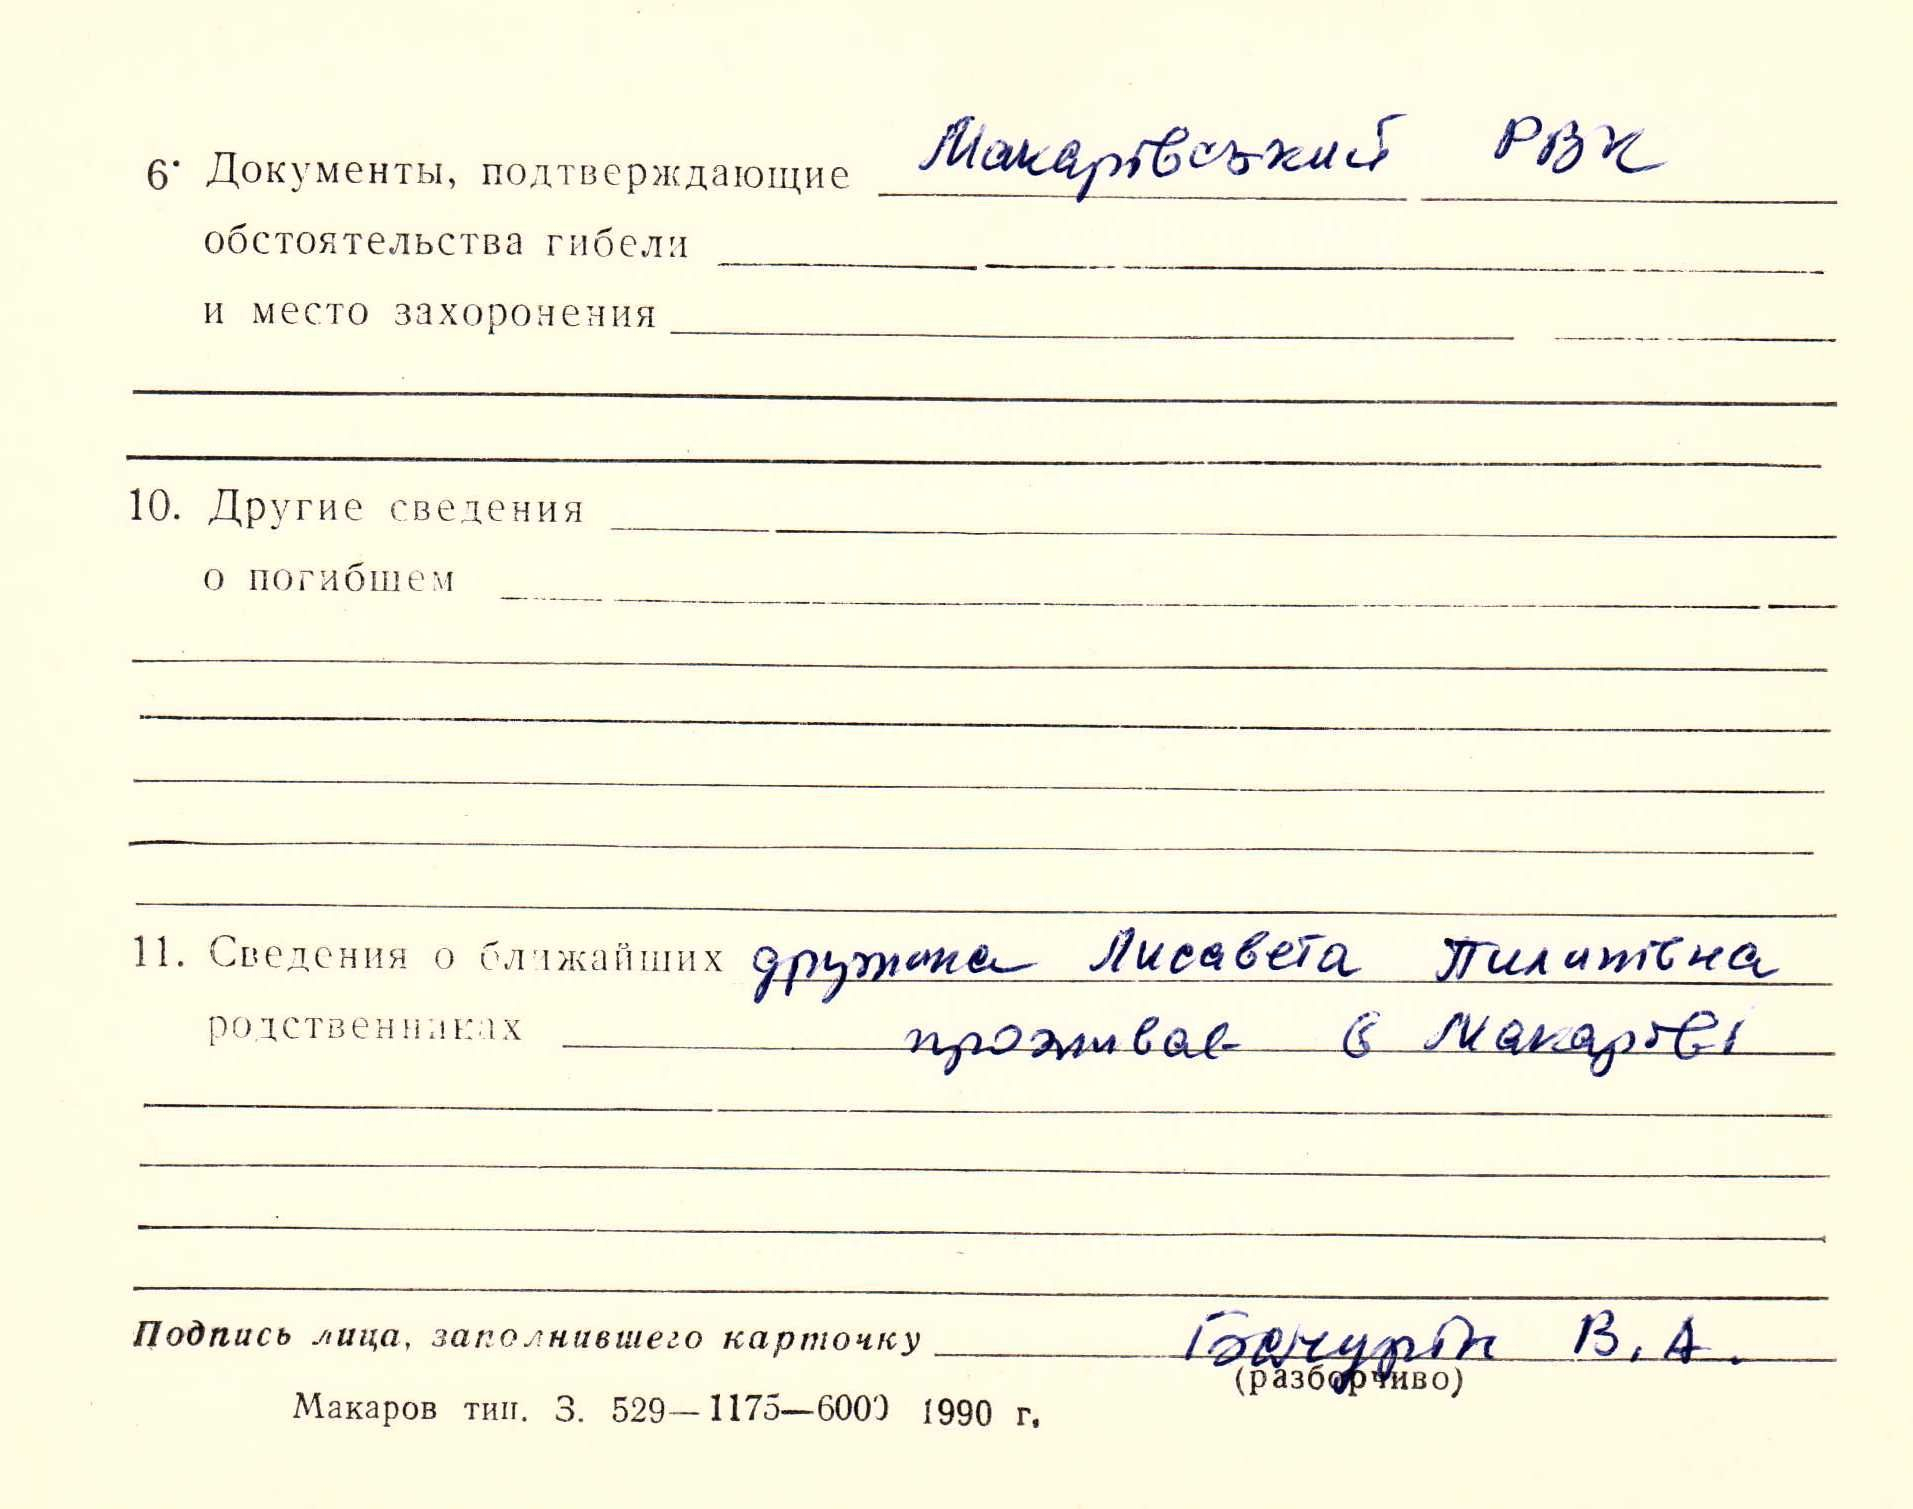 6. Документы, подтверждающие Макарівський РВК
обстоятельства гибели
и место захоронения
10. Другие сведения
о погибшем
11. Сведения о ближайших дружина Лисавета Пилипівна
родственниках проживає в Макарові
Подпись лица, заполнившего карточку В. А.
(разборчиво)
Макаров тип. З. 529—1175—6000 1990 г.